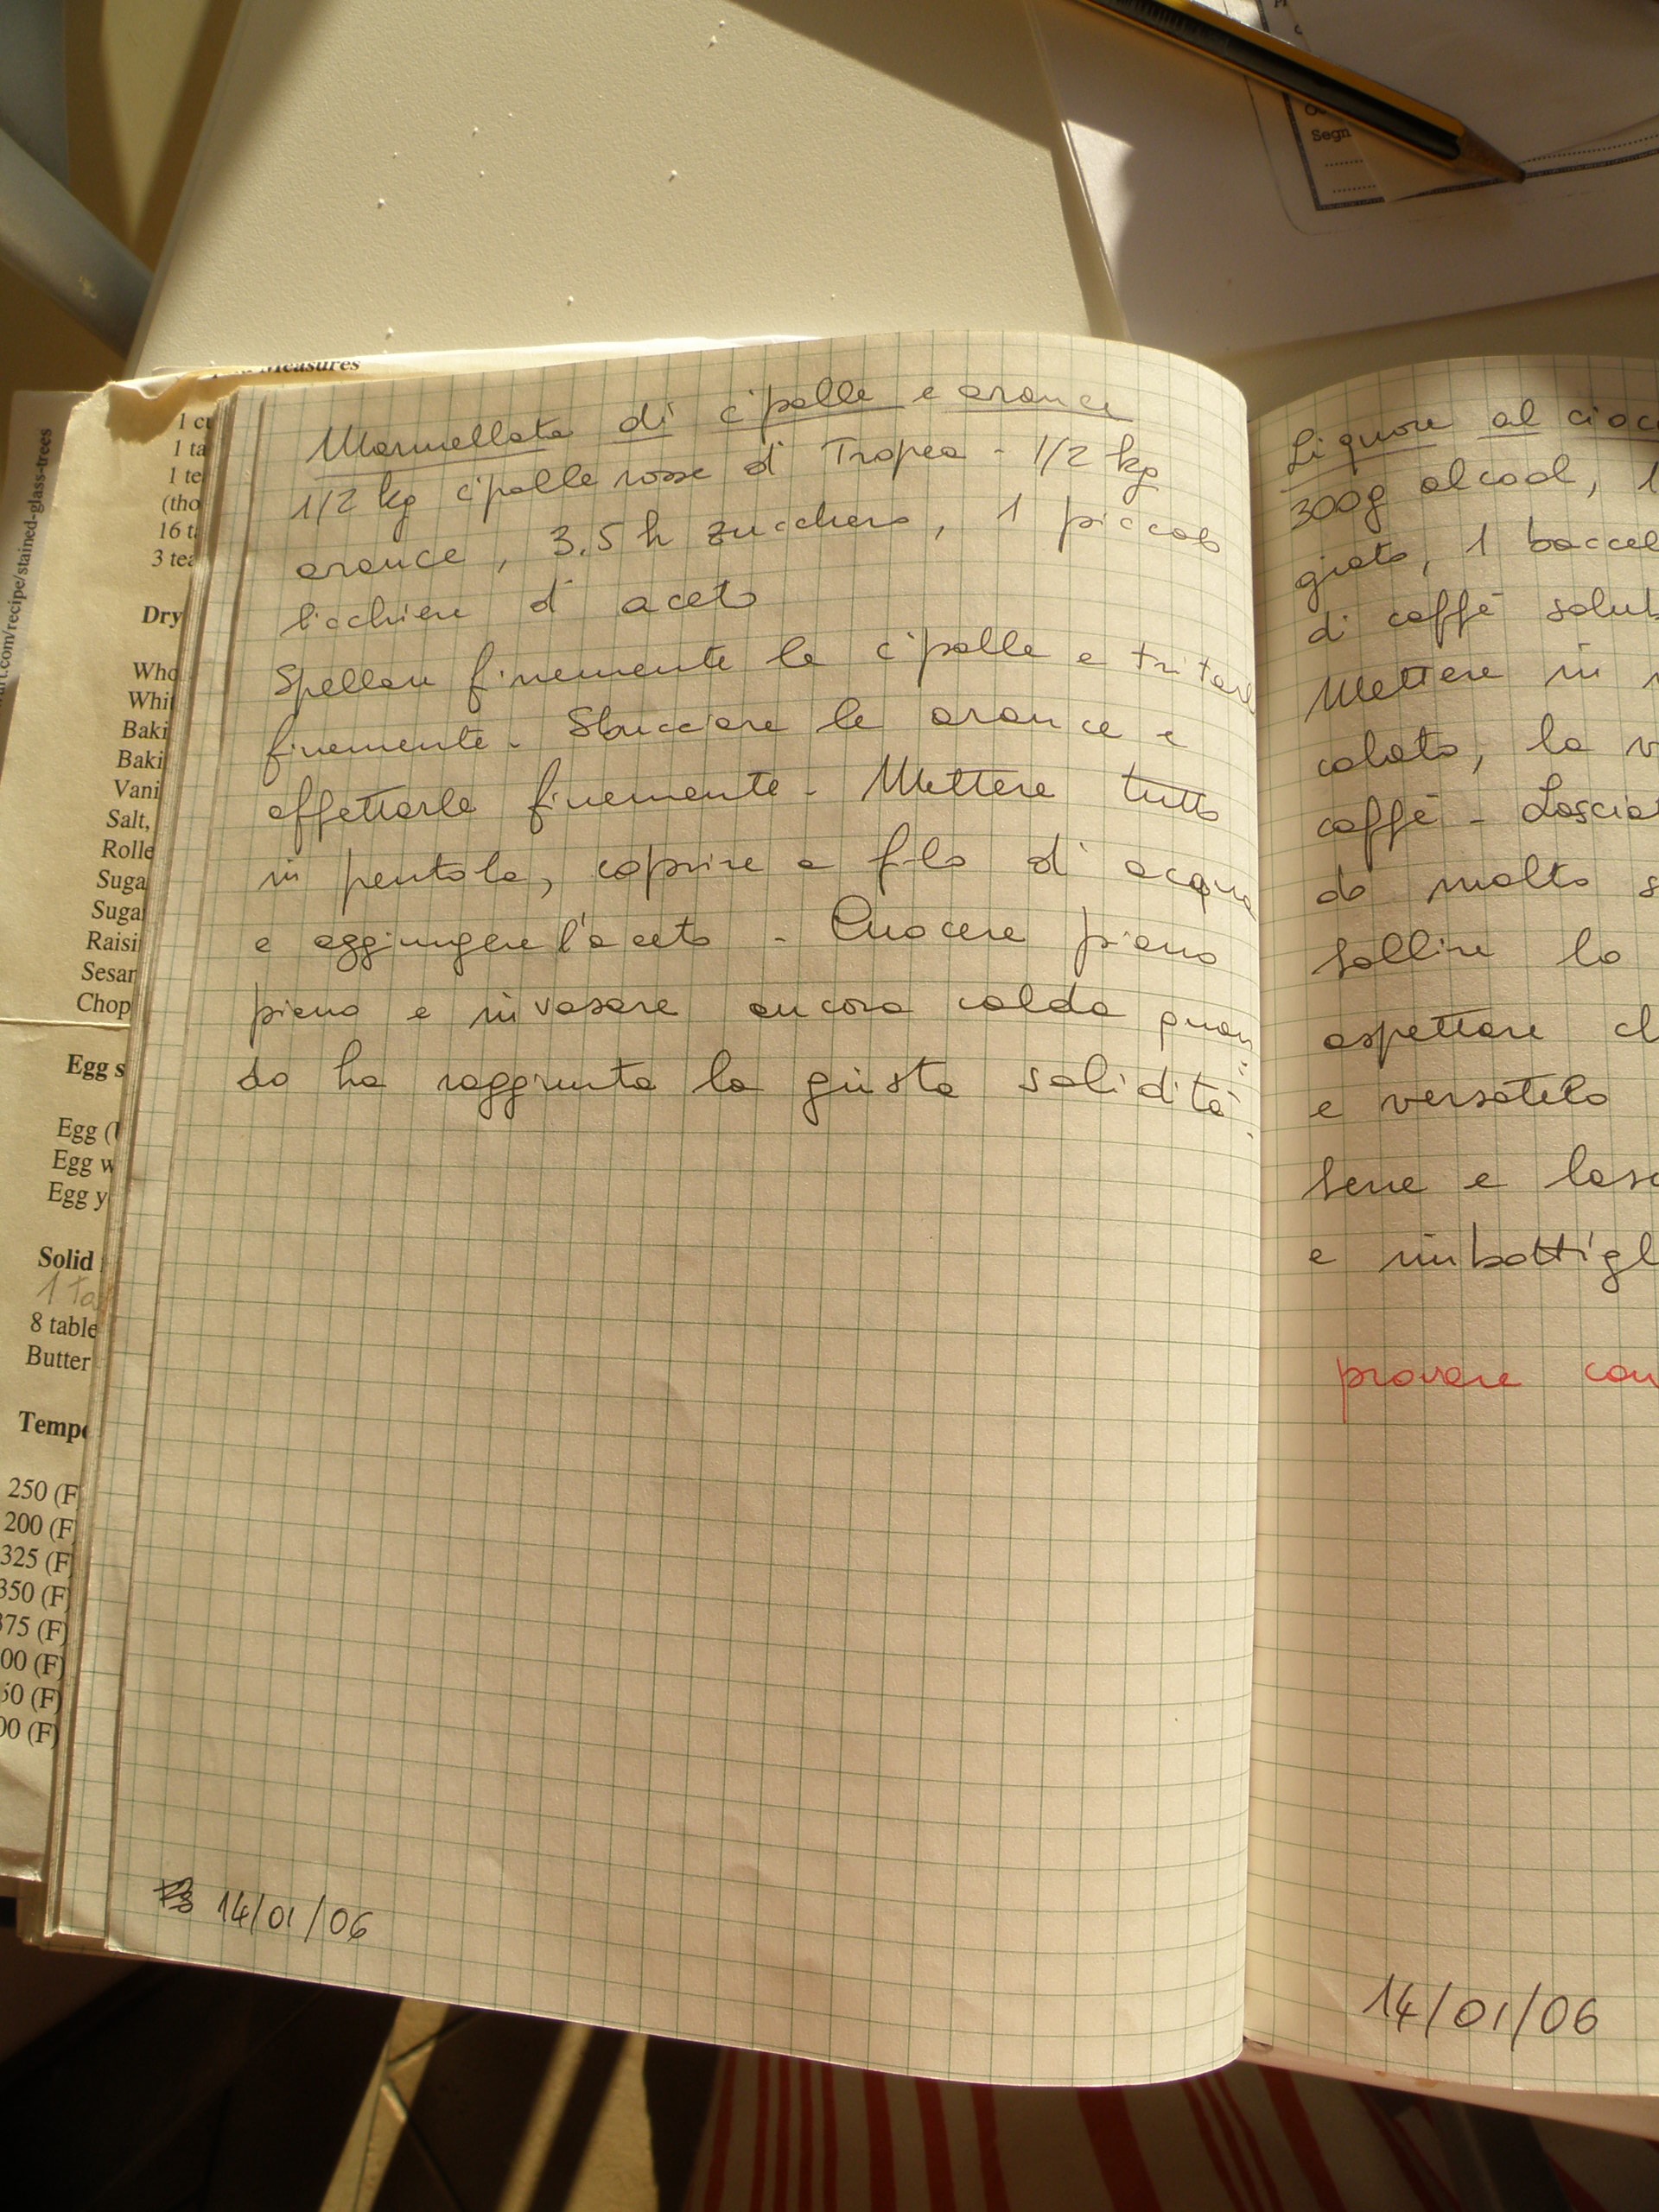 Measures
1 cu
1 ta
1 te
(tho
16 t
3 tea
Dry
Who
Whi
Baki
Baki
Vani
Salt,
Rolle
Suga
Suga
Raisi
Sesar
Chop
Egg s
Egg (
Egg w
Egg y
Solid
1 Ta
8 table
Butter
Tempe
250 (F
200 (F)
325 (F
350 (F
375 (F)
00 (F)
50 (F)
00 (F)
art.com/recipe/stained-glass-trees
Segn
Marmellata di cipolle e arance
1/2 kg cipolle rosse di Tropea - 1/2 kg
arance, 3.5 h zucchero, 1 piccolo
bicchiere d' aceto
Spellare finemente le cipolle e tritarle
finemente. Sbucciare le arance e
affettarle finemente. Mettere tutto
in pentola, coprire a filo di acqua
e aggiungere l'aceto. Cuocere piano
piano e invasare ancora calda quan
do ha raggiunta la giusta solidità.
14/01/06
Liquore al cioc
300g alcool, 1
giato, 1 baccel
di caffè solub
Mettere in
colato, la v
caffè - Lasciar
do molto s
bollire lo
aspettare ch
e versatelo
bene e lasc
e imbottigl
provare con
14/01/06